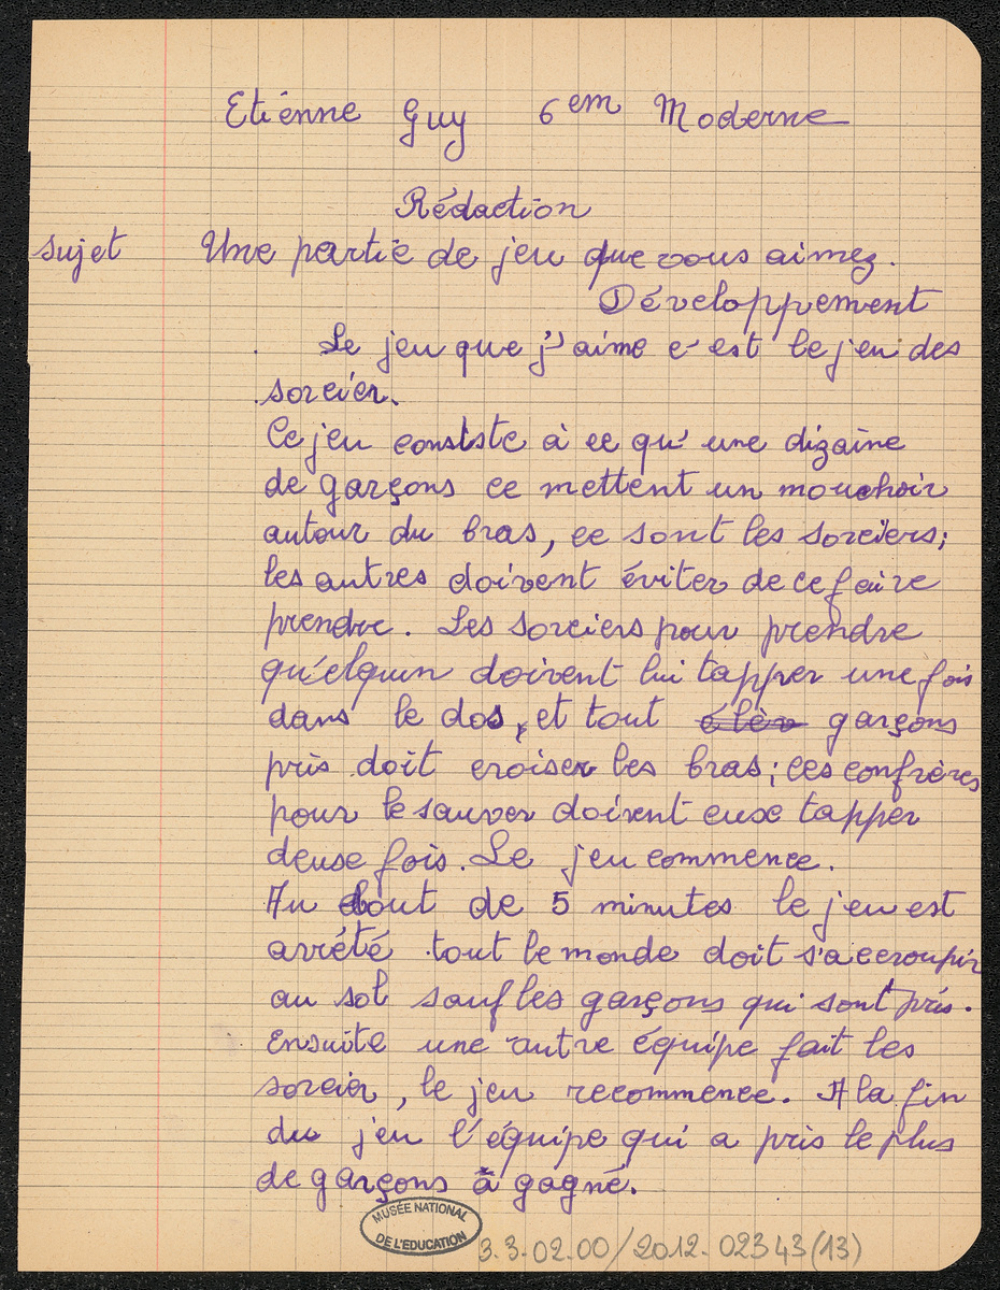 Etiénne Guy 6em Moderne
Rédaction
sujet Une partie de jeu que vous aimez.
Développement
Le jeu que j'aime c'est le jeu des
sorcier.
Ce jeu consiste à ce qu'une dizaine
de garçons ce mettent un mouchoir
autour du bras, ce sont les sorciers;
les autres doivent éviter de ce faire
prendre. Les sorciers pour prendre
qu'elquun doivent lui tapper une fois
dans le dos, et tout élèv garçons
pris doit croiser les bras; ces confrères
pour le sauver doivent eux tapper
deux fois. Le jeu commence.
Au bout de 5 minutes le jeu est
arrété tout le monde doit s'accroupir
au sol sauf les garçons qui sont pris.
Ensuite une autre équipe fait les
sorcier, le jeu recommence. A la fin
du jeu l'équipe qui a pris le plus
de garçons à gagné.
MUSÉE NATIONAL
DE L'EDUCATION
3.3.02.00/2012.02343(13)